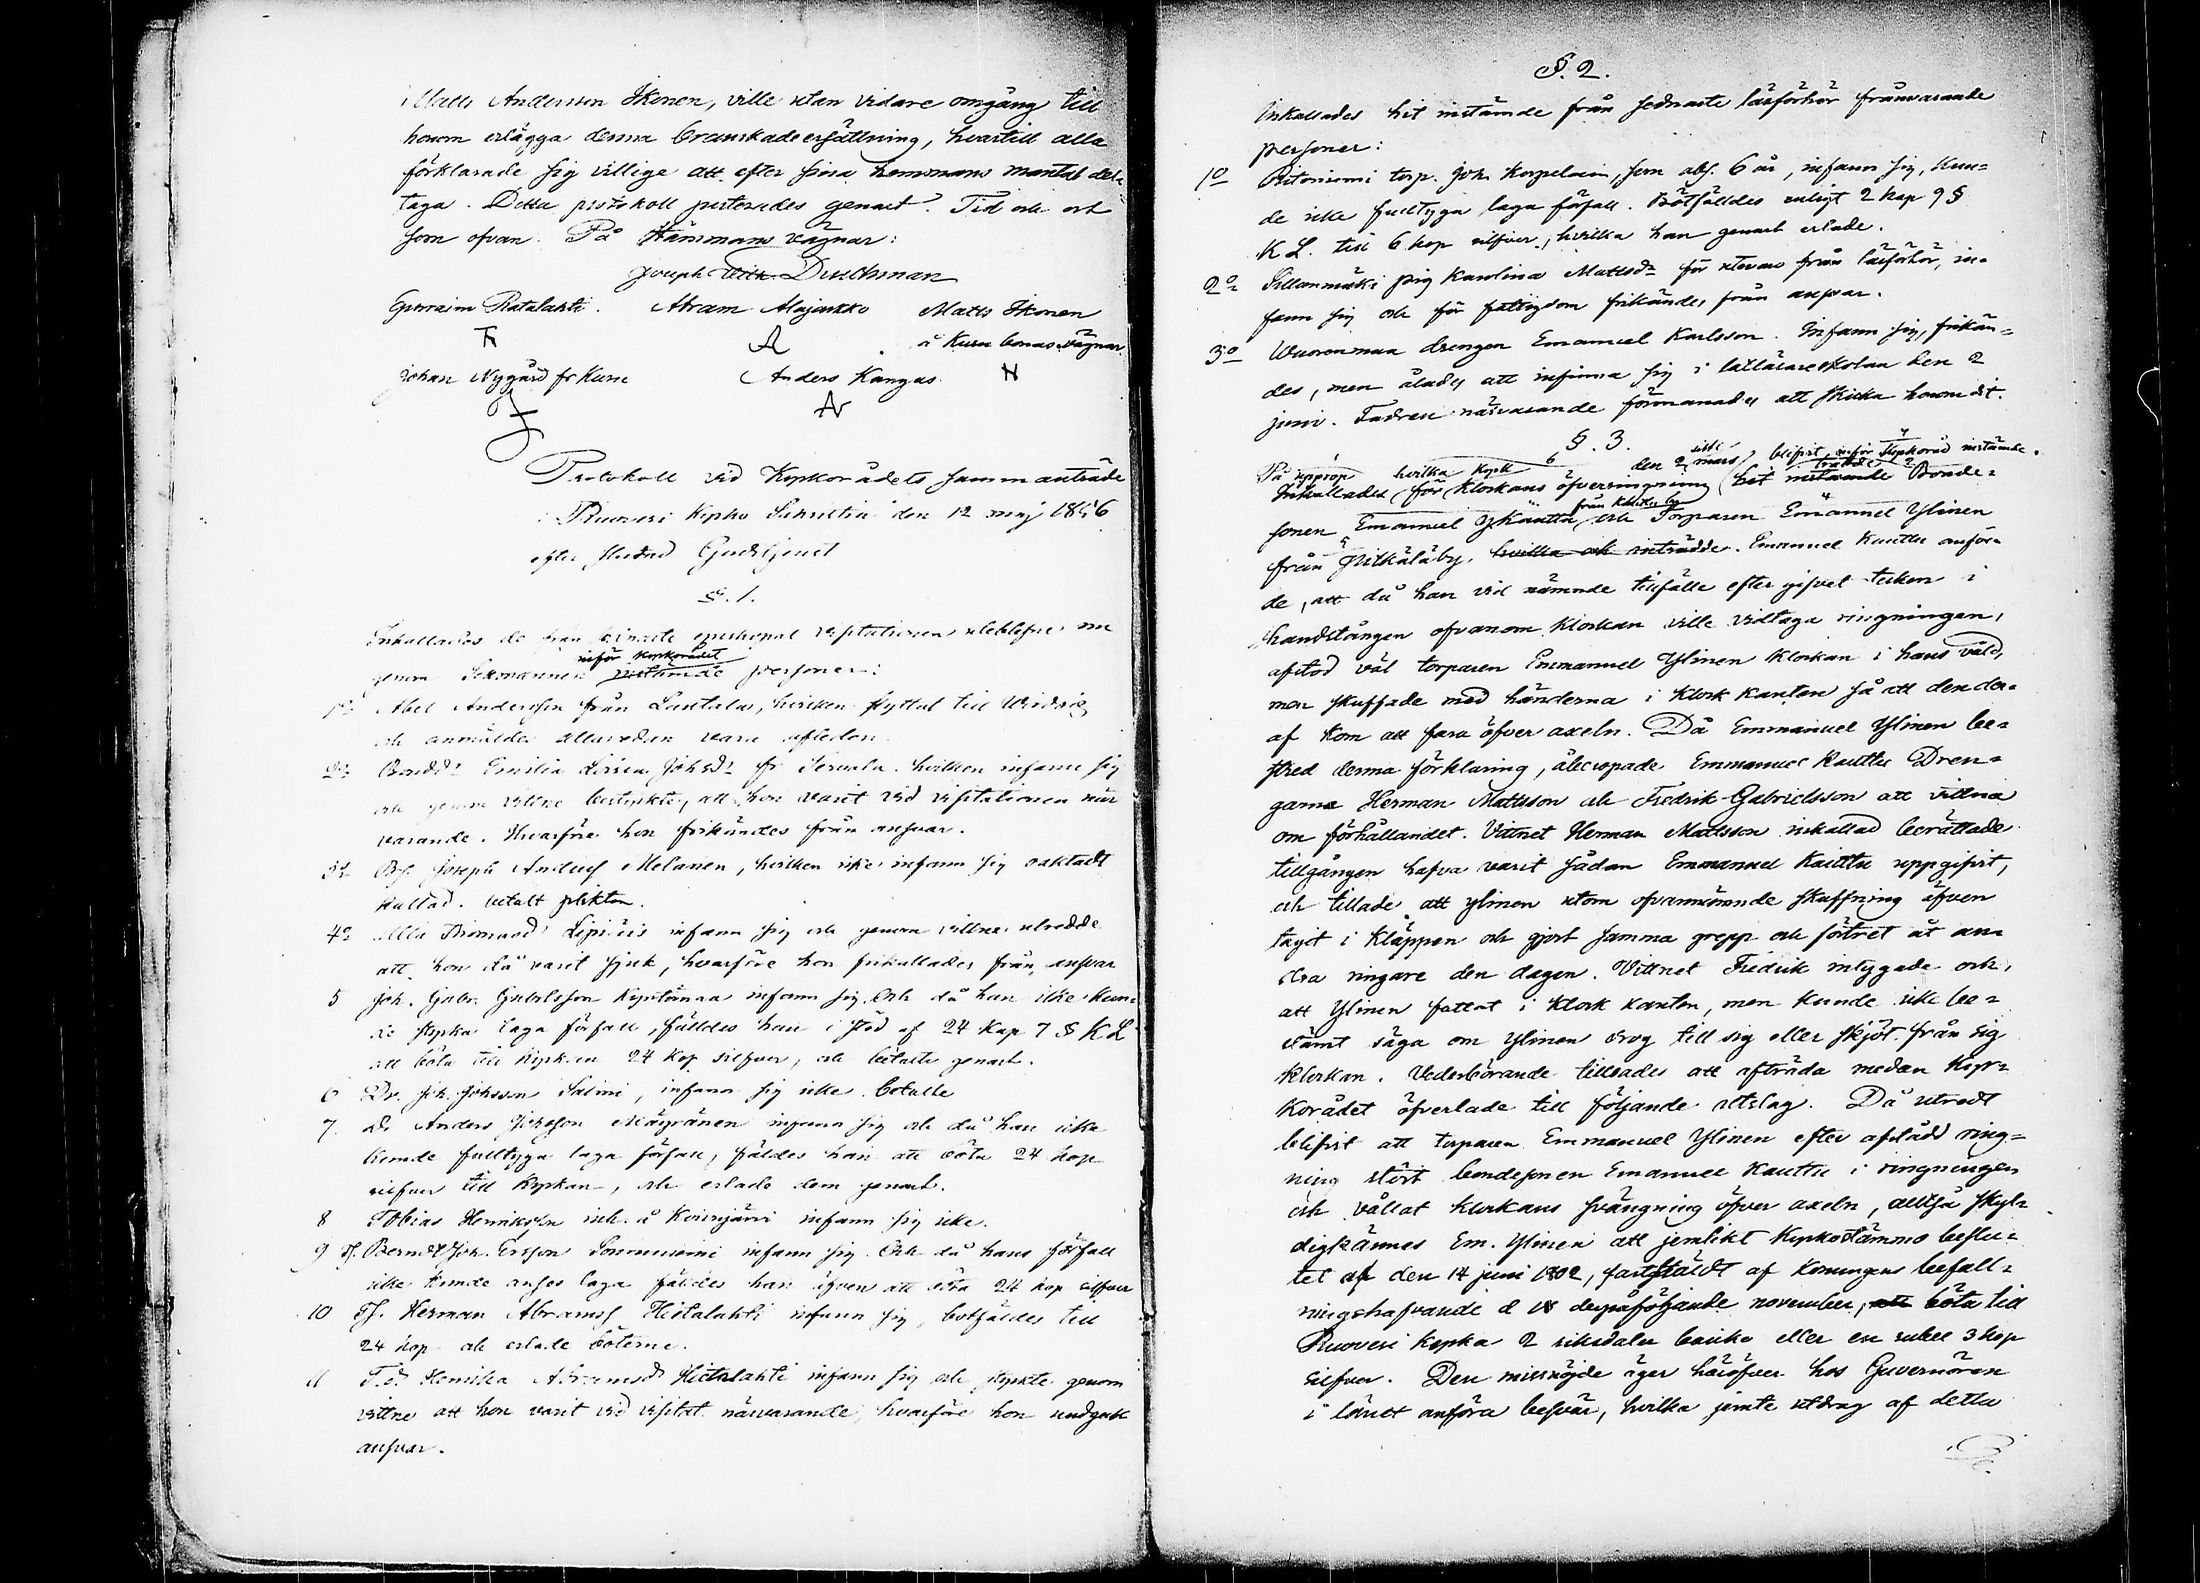 Matts Andersson Ikonen, ville utan vidare omgång till
honom erlägga denna brandskadeersättning, hvartill alla
förklarade sig villige att efter sina hemmans mantal del-
taga. Detta protokoll justerades genast. Tid och ort
som ofvan. På Stämmans vägnar:
Joseph Wilh. Durchman
Ephraim Ratalahti. Abram Alajaskko Matts Ikonen
å Kuru boxas vägnar.
Johan Nygård fr Kuru Anders Kangas
Protokoll vid Kyrkorådets sammanträde
i Ruovesi Kyrko Sakristia den 12 maj 1856
efter slutad Gudstjenst
§. 1.
Inkallades de från senaste episkopal visitationen uteblefne
genom Sexmannen inför kyrkorådet instämde personer:
1o Abel Andersson från Lautala, hvilken flyttat till Wirdois
och anmäldes alleredan vara afliden.
2o Bondd:r Emilia Lovisa Johsd:r fr Jervala. hvilken infann sig
och genom vittne bestyrkte, att hon varit vid visitationen när
varande. Hvarföre hon frikändes från ansvar.
3o Joseph Andersf Melanen, hvilken icke infann sig oaktadt
kallad. betalt plikten.
4o Ulla Thomasd Lipiäis infann sig och genom vittne utredde
att hon då varit sjuk, hvarföre hon frikallades från ansvar
5 Joh. Gabr. Gabrlsson infann sig. Och då han icke kun-
de styrka laga förfall, fälldes han i stöd af 24 Kap 7 § K L
att böta till kyrkan 24 Kop silfver, och betalte genast.
6 Dr. Joh. Johsson Salmi, infann sig icke. betalte
7. Dr Anders Josefson Mäyränen infann sig och då han icke
kunde fulltyga laga förfall, fäldes han att böta 24 kop
silfver till Kyrkan, och erlade dem genast.
8 Tobias Henriksson inh. å Kvivijärvi infann sig icke.
9 Berndt Joh. Ersson infann sig. Och då hans förfall
icke kunde anses laga fäldes han äfven att böta 24 kop silfver
10 Herman Abramsf Hietalahti infann sig, botfäldes till
24 kop och erlade böterne.
11 Hemilia Abramsd Hietalahti infann sig och styrkte genom
vittne att hon varit vid visitat. närvarande, hvarföre hon undgick
ansvar.
§. 2.
Inkallades hit instämde från sednaste läsförhör frånvarande
personer:
1o Ritoniemi torp. Joh Korpelain, som abs. 6 år, infann sig, kun-
de icke fulltyga laga förfall. Bötfälldes enligt 2 kap 9 §
K L. till 6 kop silfver, hvilka han genast erlade.
2o Sillanmäki pig Karolina Mattsdr för utevaro från läsförhör, in-
fann sig och för fattigdom frikändes från ansvar.
3o Wuorenmaa drengen Emanuel Karlsson. Infann sig, frikän-
des, men ålades att infinna sig i lättläsareskolan den 2
juni. Fadren närvarande förmanades att skicka honom dit.
§ 3.
På upprop hvilka den 2 mars blifvit inför Kyrkoråd instämde.
Inkallades för klockans öfverringning hit instämde Bonde-
sonen Emanuel Kauttu från Kauttu by och Torparen Emanuel Ylinen
från Pihkälä by, hvilka ock inträdde. Emanuel Kauttu anför-
de, att då han vid nämnde tillfälle efter gifvet tecken i
handstången ofvanom klockan ville vidtaga ringningen,
afstod väl torparen Emmanuel Ylinen klockan i hans våld,
men skuffade med händerna i klock kanten så att den der-
af kom att fara öfver axeln. Då Emmanuel Ylinen be-
stred denna förklaring, åberopade Emmanuel Kauttu Dren-
garne Herman Mattsson och Fredrik Gabrielsson att vittna
om förhållandet. Vittnet Herman Mattsson inkallad berättade
tillgången hafva varit sådan Emmanuel Kauttu uppgifvit,
och tillade att Ylinen utom ofvannämnde skuffning äfven
tagit i kläppen och gjort samma grepp och förtret åt an-
dra ringare den dagen. Vittnet Fredrik intygade ock,
att Ylinen fattat i klock kanten, men kunde icke be-
stämt säga om Ylinen drog till sig eller skjöt från sig
klockan. Vederbörande tillsades att afträda medan Kyr-
korådet öfverlade till följande utslag. Då utredt
blifvit att torparen Emmanuel Ylinen efter afslådd ring-
ning stört bondesonen Emanuel Kauttu i ringningen
och vållat klockans svängning öfver axeln, alltså skyl-
digkännes Em. Ylinen att jemlikt Kyrkostämmo beslu-
tet af den 14 juni 1802, fastställdt af Konungens befall-
ningshafvande d 18 derpåföljande november, att böta till
Ruovesi kyrka 2 riksdaler banko eller en rubel 3 kop
silfver. Den missnöjde äger häröfver hos Guvernören
i länet anföra besvär, hvilka jemte utdrag af detta